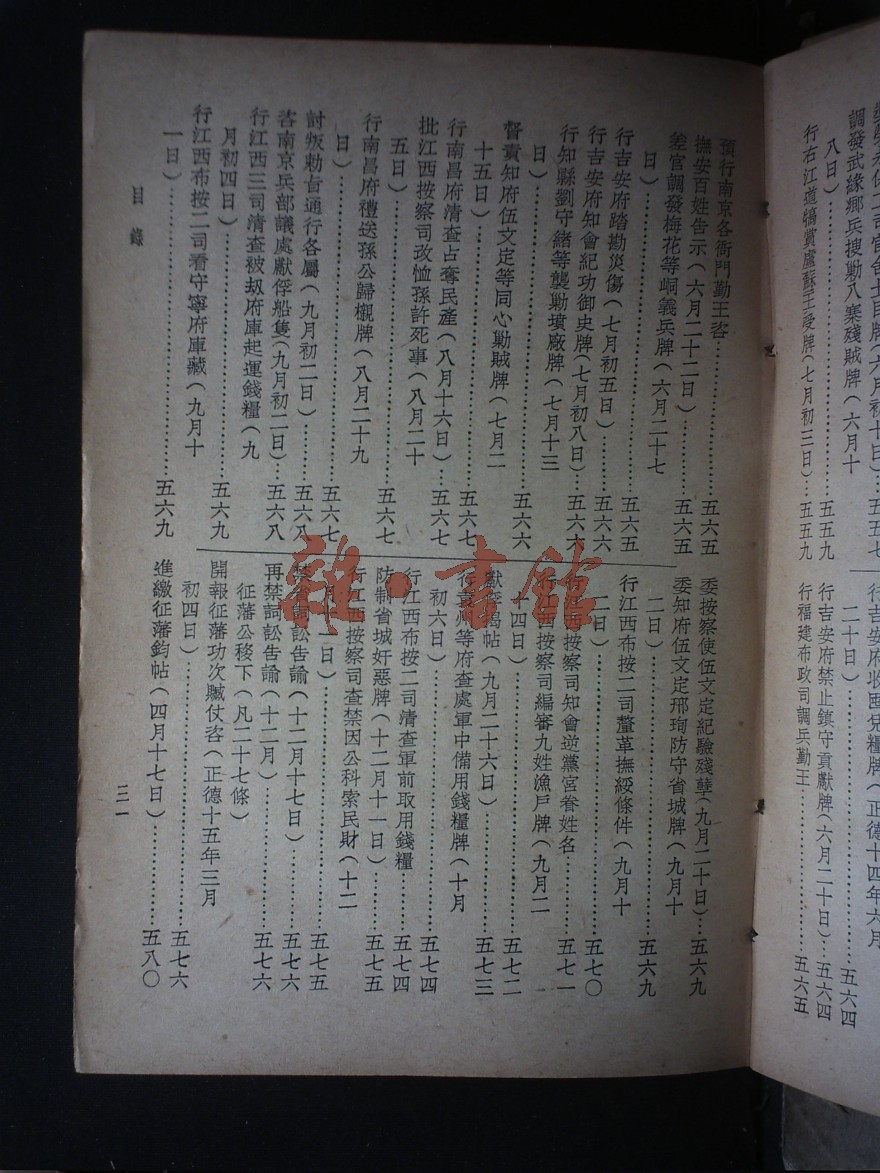 調發武緣鄉兵搜勦八寨殘賊牌(六月十
八日)……五五九
行右江道犒賞盧蘇王受牌(七月初三日)…五五九
二十日)……五六四
行吉安府禁止鎮守貢獻牌(六月二十日)…五六四
行福建布政司調兵勤王……五六五
預行南京各衙門勤王咨……五六五
撫安百姓告示(六月二十二日)……五六五
差官調發梅花等峒義兵牌(六月二十七
日)……五六五
行吉安府踏勘災傷(七月初五日)……五六五
行吉安府知會紀功御史牌(七月初八日)…五六六
行知縣劉守緒等襲勦墳廠牌(七月十三
日)……五六六
督責知府伍文定等同心勦賊牌(七月二
十五日)……五六六
行南昌府清查占奪民產(八月十六日)…五六七
批江西按察司改恤孫許死事(八月二十
五日)……五六七
行南昌府禮送孫公歸櫬牌(八月二十九
日)……五六七
討叛勅旨通行各屬(九月初二日)……五六八
咨南京兵部議處獻俘船隻(九月初二日)…五六八
行江西三司清查被刼府庫起運錢糧(九
月初四日)……五六九
行江西布按二司看守寧府庫藏(九月十
一日)……五六九
委按察使伍文定紀驗殘孽(九月二十日)…五六九
委知府伍文定邢珣防守省城牌(九月十
二日)……五六九
行江西布按二司釐革撫綏條件(九月十
二日)……五七〇
行江西按察司知會逆黨宮眷姓名……五七一
行江西按察司編審九姓漁戶牌(九月二
十四日)……五七二
獻俘揭帖(九月二十六日)……五七三
行袁州等府查處軍中備用錢糧牌(十月
初六日)……五七四
行江西布按二司清查軍前取用錢糧……五七四
防制省城奸惡牌(十二月十一日)……五七五
行江西按察司查禁因公科索民財(十二
月十一日)……五七五
禁省詞訟告諭(十二月十七日)……五七六
再禁詞訟告諭(十二月)……五七六
征藩公移下(凡二十七條)
開報征藩功次贓仗咨(正德十五年三月
初四日)……五七六
進繳征藩鈞帖(四月十七日)……五八〇
目錄
三一
雜·書館